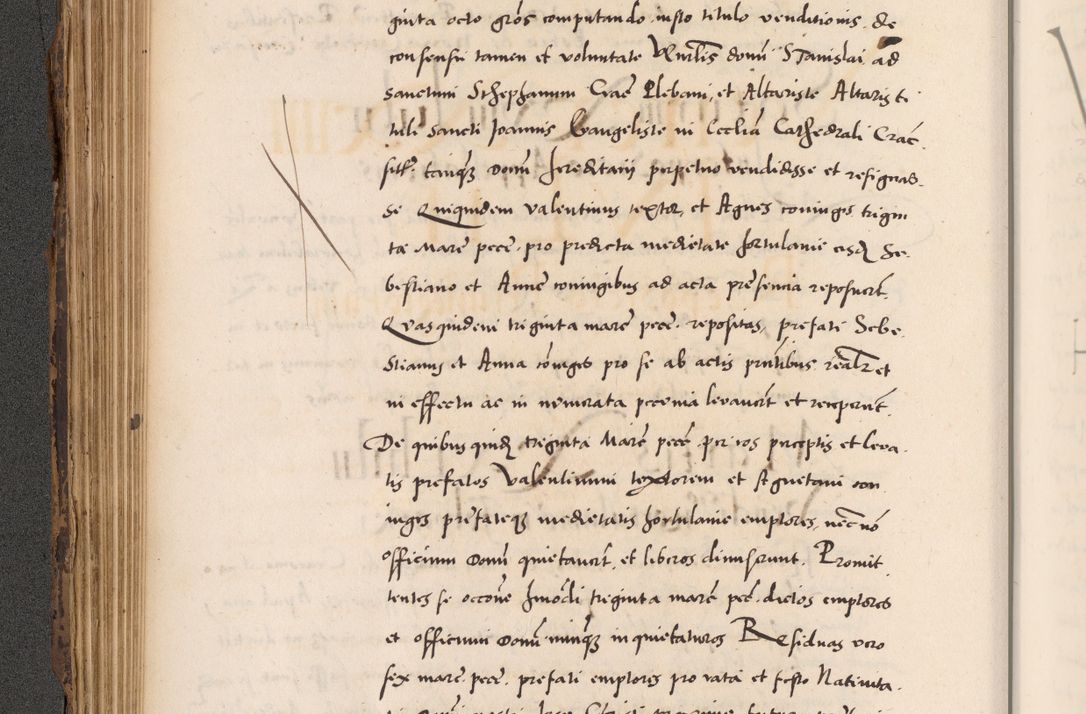 ginta octo gros computando iusto titulo venditionis de
consensu tamen et voluntate Vnrlis domi Stanislai ad
sanctum Sthephanum Crac plebani, et Altariste Altaris ti
tuli sancti Joannis Evangeliste in Ecclia Cathedrali Crac.
sitt. tanqz domi hereditarii perpetuo vendidisse et resignas
se Quiquidem valentinus textor, et Agnes coniuges trigin
ta Marc pece. pro predicta medietate hortulanie eisd Se
bestiano et Anne coniugibus ad acta presencia reposuert.
Quasquidem triginta marc pece. repositas, prefati Sebe
stianus et Anna coniuges pro se ab actis pntibus realr et
in effectu ac in numerata pecunia levavert et receperut.
De quibus quidz triginta Marc pece. per eos perceptis et leva
tis prefatos valentinum textorem et Agnetam con
iuges prefateqz medietatis hortulanie emptores, necno
officium domi quietavert, et liberos dimiserunt. Promit
tentes se occone hmodi triginta marc pec. dictos emptores
et officium domi nunqz inquietaturos Residuas vero
sex marc. pece. prefati emptores pro rata et festo Nativita